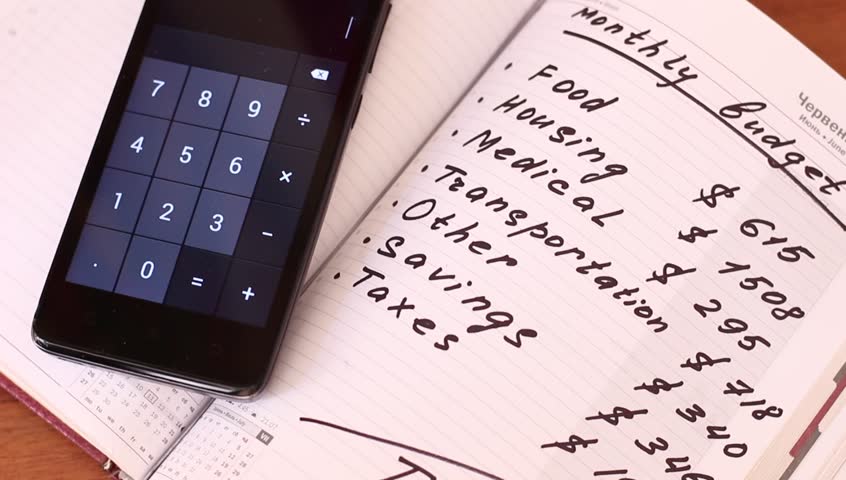 7 8 9 ÷
4 5 6 ×
1 2 3 −
. 0 = +
Monthly budget
• Food $ 615
• Housing $ 1508
• Medical $ 295
• Transportation $ 718
• Other $ 340
• Savings $ 346
• Taxes $
Червен
Июнь • June